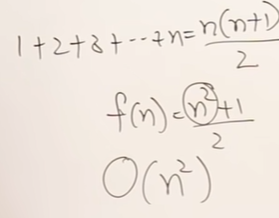 1+2+3+---+n=n(n+1)/2
f(n)=n²+1/2
O(n²)